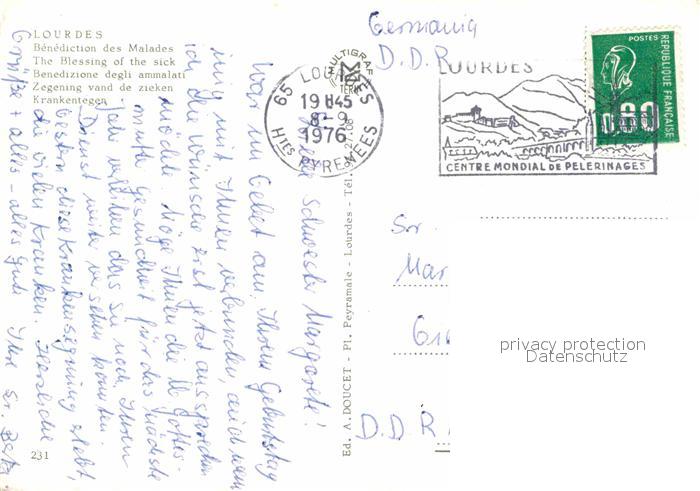 LOURDES
Bénédiction des Malades
The Blessing of the sick
Benedizione degli ammalati
Zegening vand de zieken
Krankentegen
231
Liebe Schwester Margarete!
War im Gebet am Ihrem Geburtstag
innig mit Ihnen verbunden, auch wenn
ich die Wünsche erst jetzt aussprechen
möchte. Möge Ihnen die lb Gottes-
mutter Gesundheit für das nächste
Jahr erbitten das Sie noch Ihren
Dienst weiter versehen können.
Gestern diese Krankensegnung erlebt,
die vielen Kranken. Herzliche
Grüße + alles - alles gute Ihre Sr.
Ed. A. DOUCET - Pl. Peyramale - Lourdes - Tél.
MULTIGRAF
TERNI
65 LOURDES
19 H45
8-9
1976
HTES PYRENEES
LOURDES
CENTRE MONDIAL DE PELERINAGES
POSTES
REPUBLIQUE FRANÇAISE
0.80
Germania
D.D.R
Sr.
Mar
privacy protection
Datenschutz
D.D.R